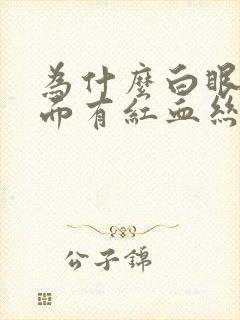 為什麼白眼
而有紅血絲
公子錦